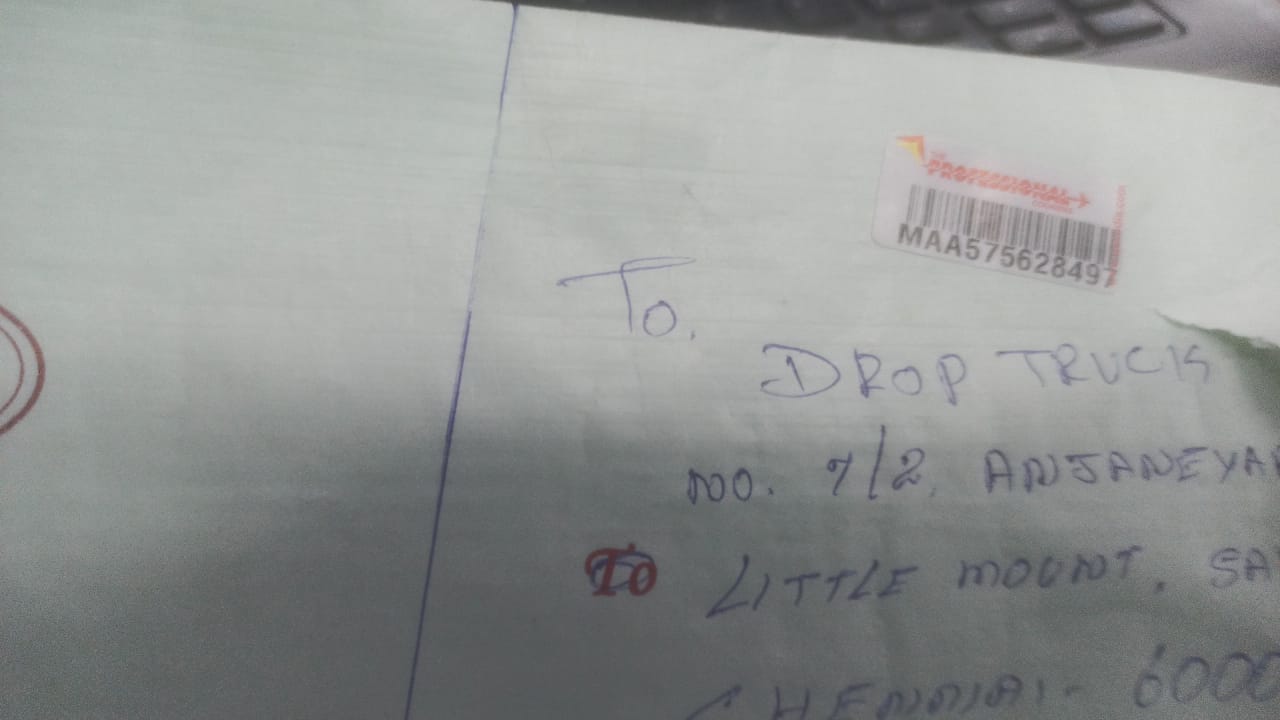 THE PROFESSIONAL
COURIERS
MAA575628497
To.
DROP TRUCK
NO. 7/2, ANJANEYA
To LITTLE MOUNT, SA
CHENNAI- 6000